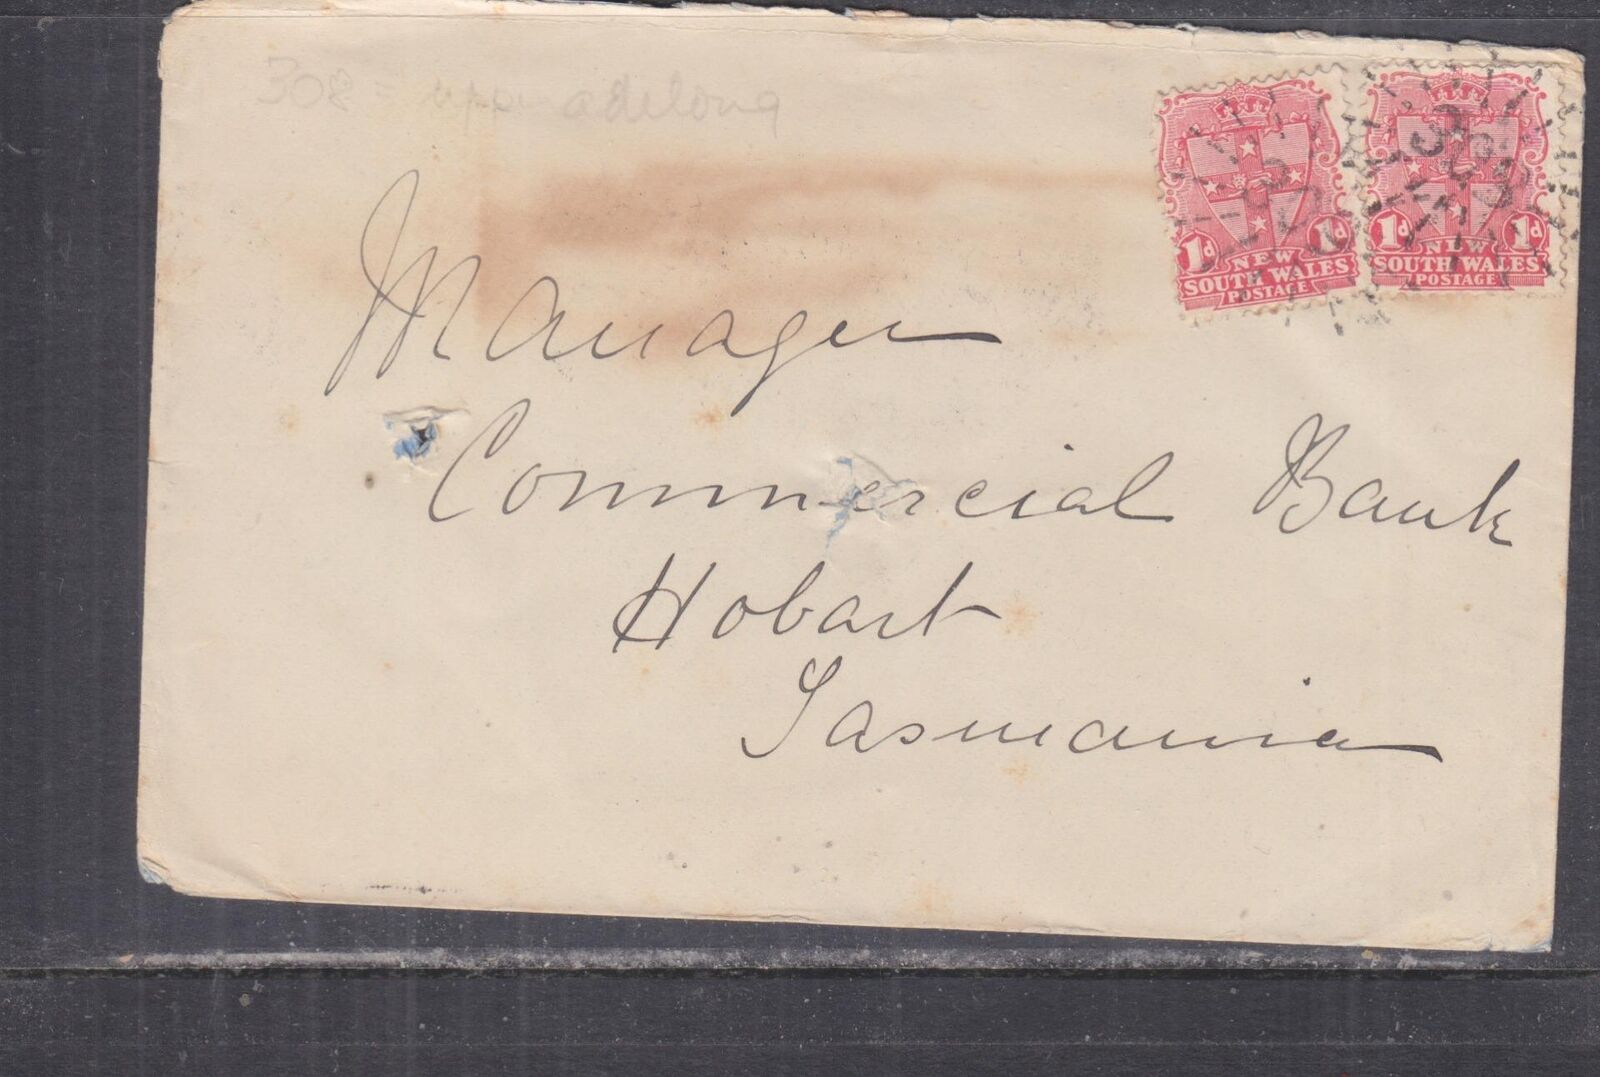 308 = upper adelong
Manager
Commercial Bank
Hobart
Tasmania
1d 1d
NEW
SOUTH WALES
POSTAGE
1d 1d
NEW
SOUTH WALES
POSTAGE